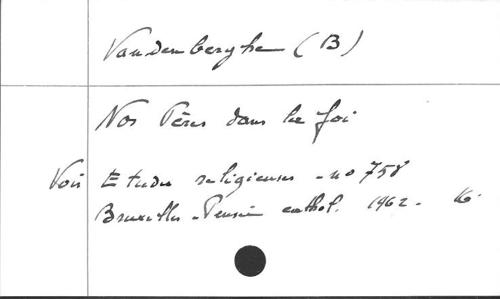 Vandenberghe (B)
Nos Pères dans la foi
Voir Etudes religieuses - no 758
Bruxelles - Pensée cathol. 1962 -